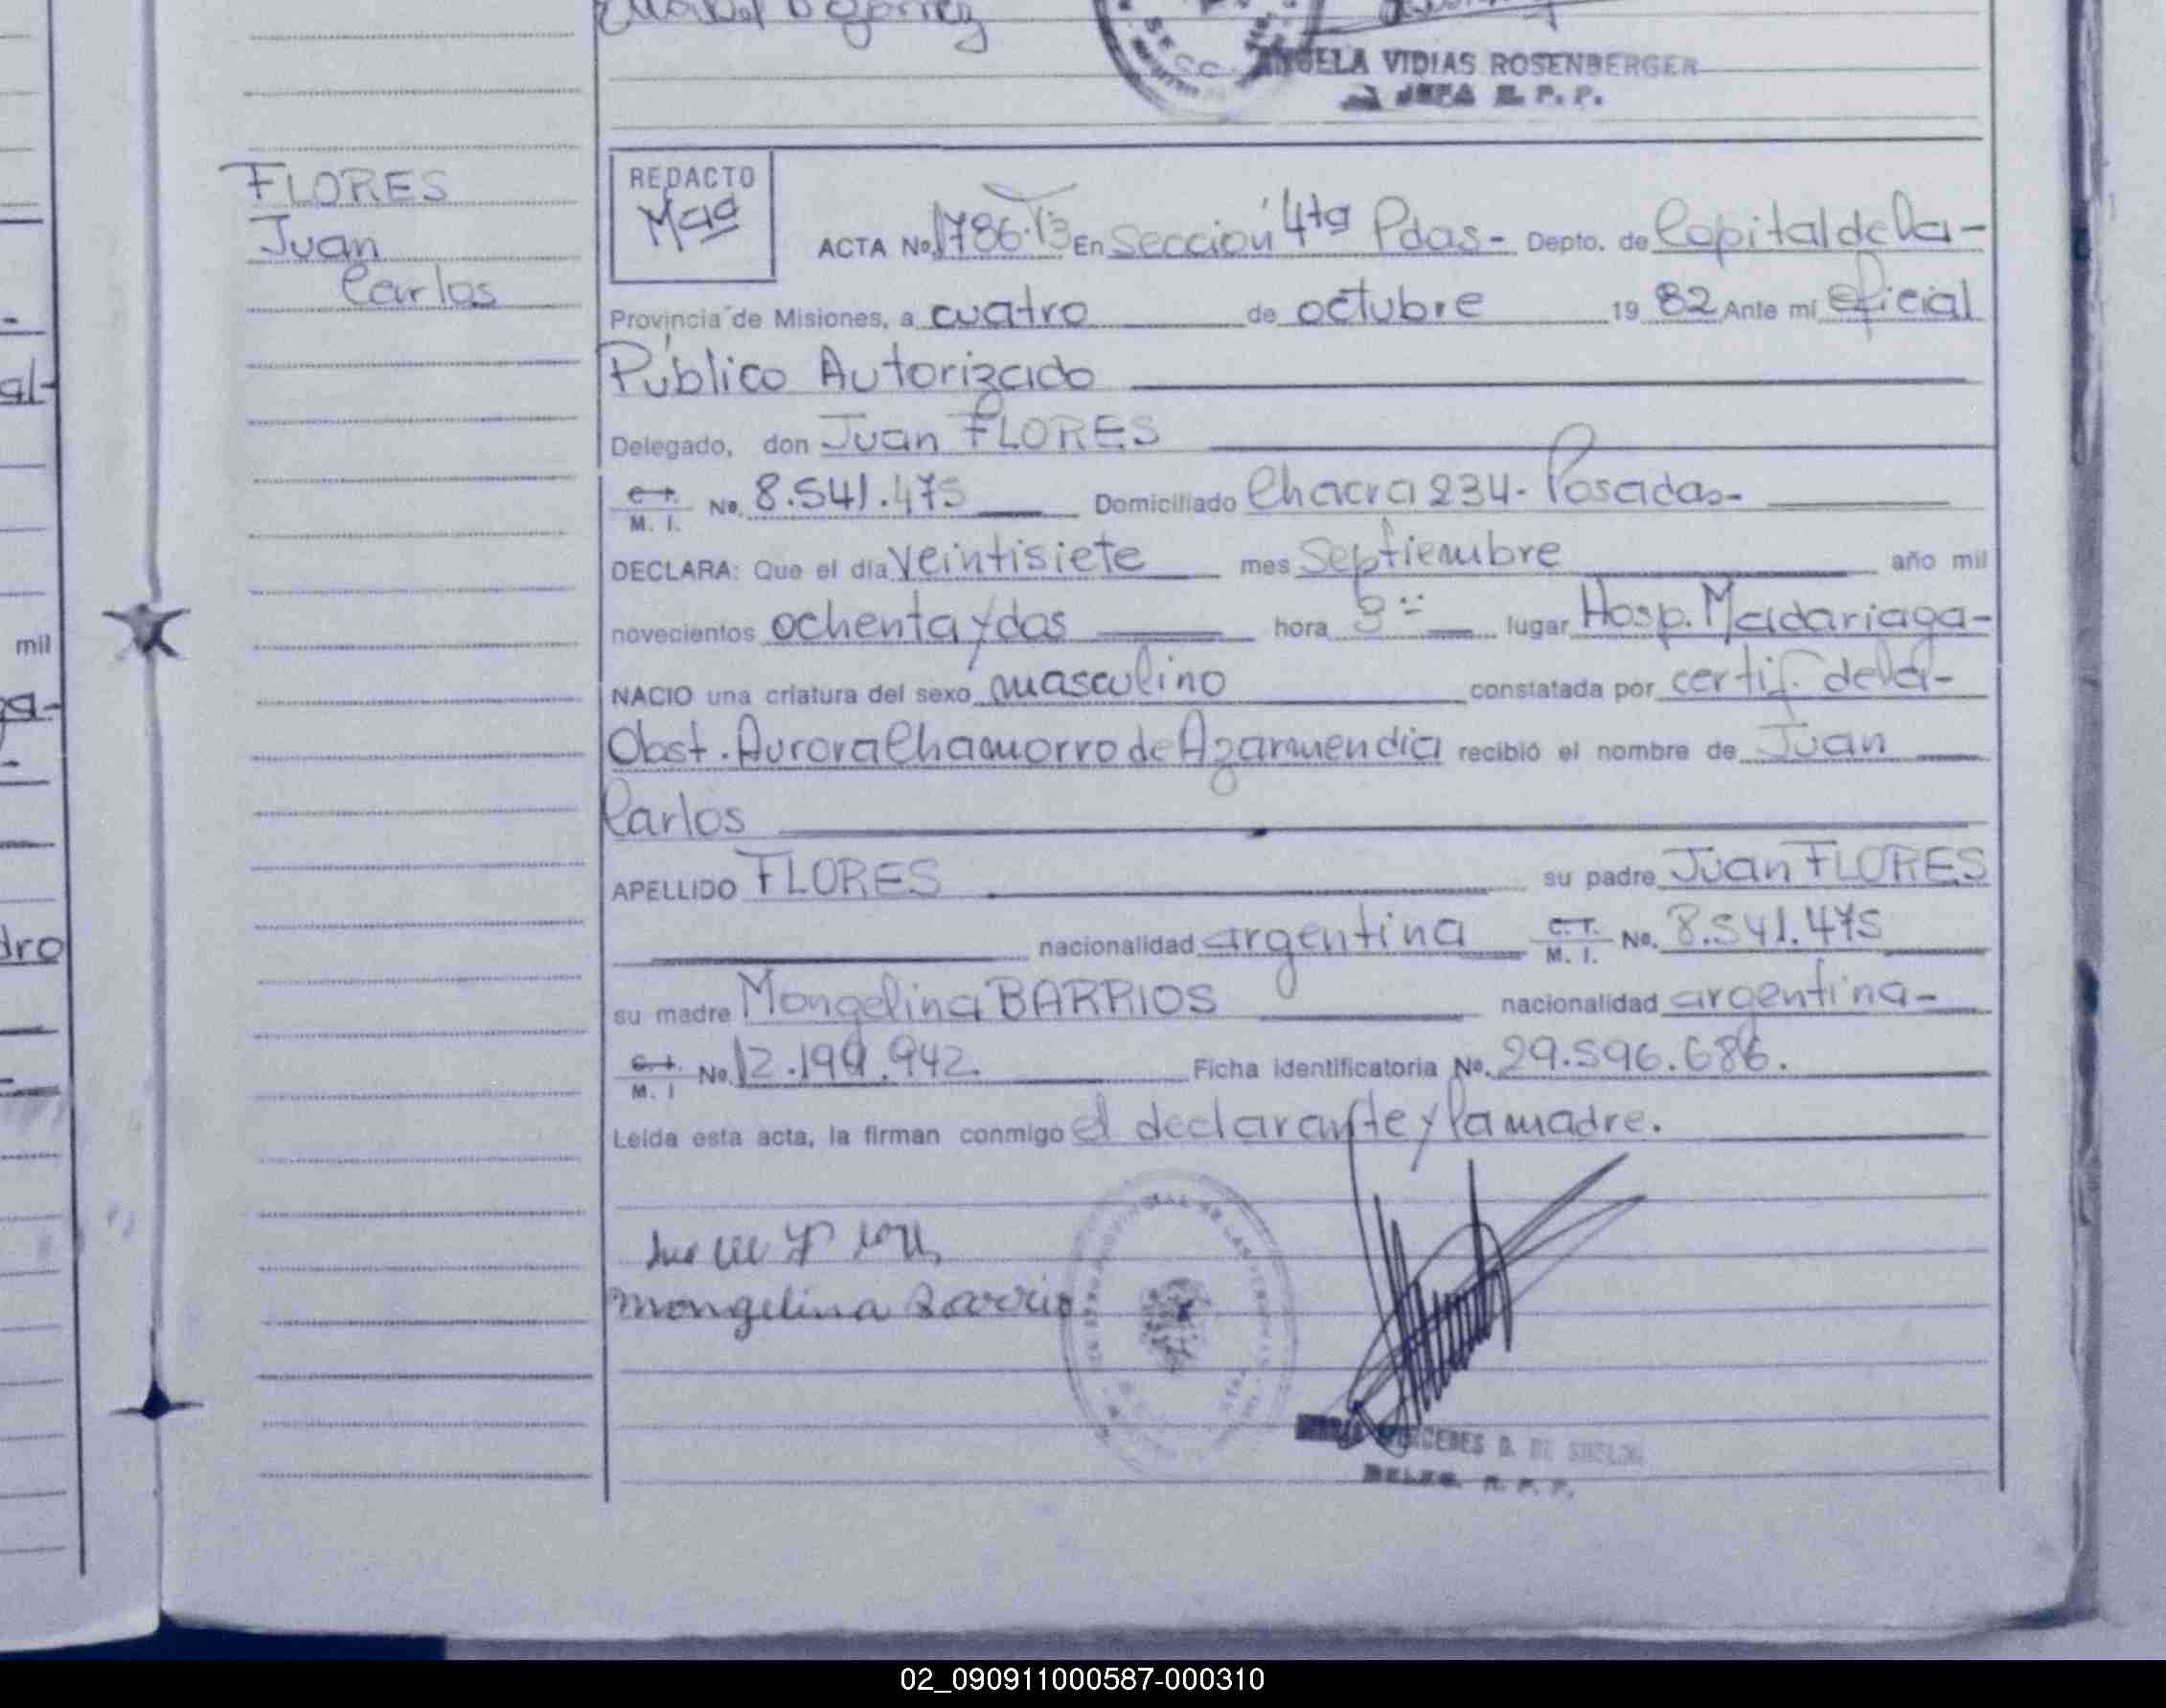 ANGELA VIDIAS ROSENBERGER
JEFA R. P. P.
FLORES
Juan
Carlos
REDACTO
ACTA No. 1786·T3 En Sección 4ta Pdas- Depto. de Capital de la-
Provincia de Misiones, a cuatro de octubre 19 82 Ante mí oficial
Público Autorizado
Delegado, don Juan FLORES
C.I. M. I. No. 8.541.475 Domiciliado Chacra 234- Posadas-
DECLARA: Que el día veintisiete mes septiembre año mil
novecientos ochenta y dos hora lugar Hosp. Madariaga-
NACIO una criatura del sexo masculino constatada por certif. de la-
Obst. Aurora Chamorro de Azarmendia recibió el nombre de Juan
Carlos
APELLIDO FLORES su padre Juan FLORES
nacionalidad argentina C.I. M. I. No. 8.541.475
su madre Mongelina BARRIOS nacionalidad argentina-
C.I. M. I No. 12.199.942. Ficha identificatoria No. 29.596.686.
Leída esta acta, la firman conmigo el declarante y la madre.
Mongelina Barrio
MERCEDES D. DE
DELEG. R. P. P.
al-
mil
ga-
dro
02_090911000587-000310